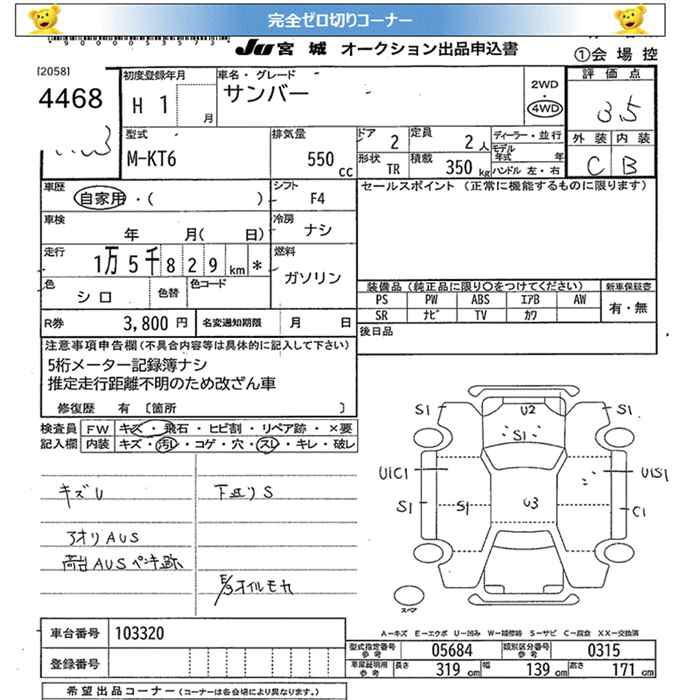 完全ゼロ切りコーナー
JU 宮城 オークション出品申込書
①会場控
[2058]
4468
初度登録年月
H 1 月
車名・グレード
サンバー
2WD
・
4WD
評価点
3.5
外装 内装
C B
型式
M-KT6
排気量
550 cc
ドア 2
定員 2 人
形状 TR
積載 350 kg
ディーラー・並行
モデル
年式 年
ハンドル 左・右
車歴
自家用・( )
シフト
F4
セールスポイント (正常に機能するものに限ります)
車検
年 月( 日)
冷房
ナシ
走行
1万5千829 km *
燃料
ガソリン
色
シロ
色替
色コード
装備品 (純正品に限り〇をつけてください)
新車保証書
PS PW ABS エアB AW
SR ナビ TV カワ
有・無
R券 3,800円
名変通知期限 月 日
後日品
注意事項申告欄 (不具合内容等は具体的に記入して下さい)
5桁メーター記録簿ナシ
推定走行距離不明のため改ざん車
修復歴 有 〔箇所 〕
検査員
記入欄
FW キズ・飛石・ヒビ割・リペア跡・×要
内装 キズ・汚レ・コゲ・穴・スレ・キレ・破レ
キズU
下廻りS
アオリAUS
荷台AUSペンキ跡
E/gオイルモレ
S1 U2 S1
S1
U1C1 U1S1
S1 S1 U3 C1
スペア
A－キズ E－エクボ U－凹み W－補修跡 S－サビ C－腐食 XX－交換済
車台番号 103320
登録番号
型式指定番号
参考
05684
類別区分番号
参考
0315
車庫証明用
参考
長さ 319 cm 幅 139 cm 高さ 171 cm
希望出品コーナー (コーナーは各会場により異なります。)